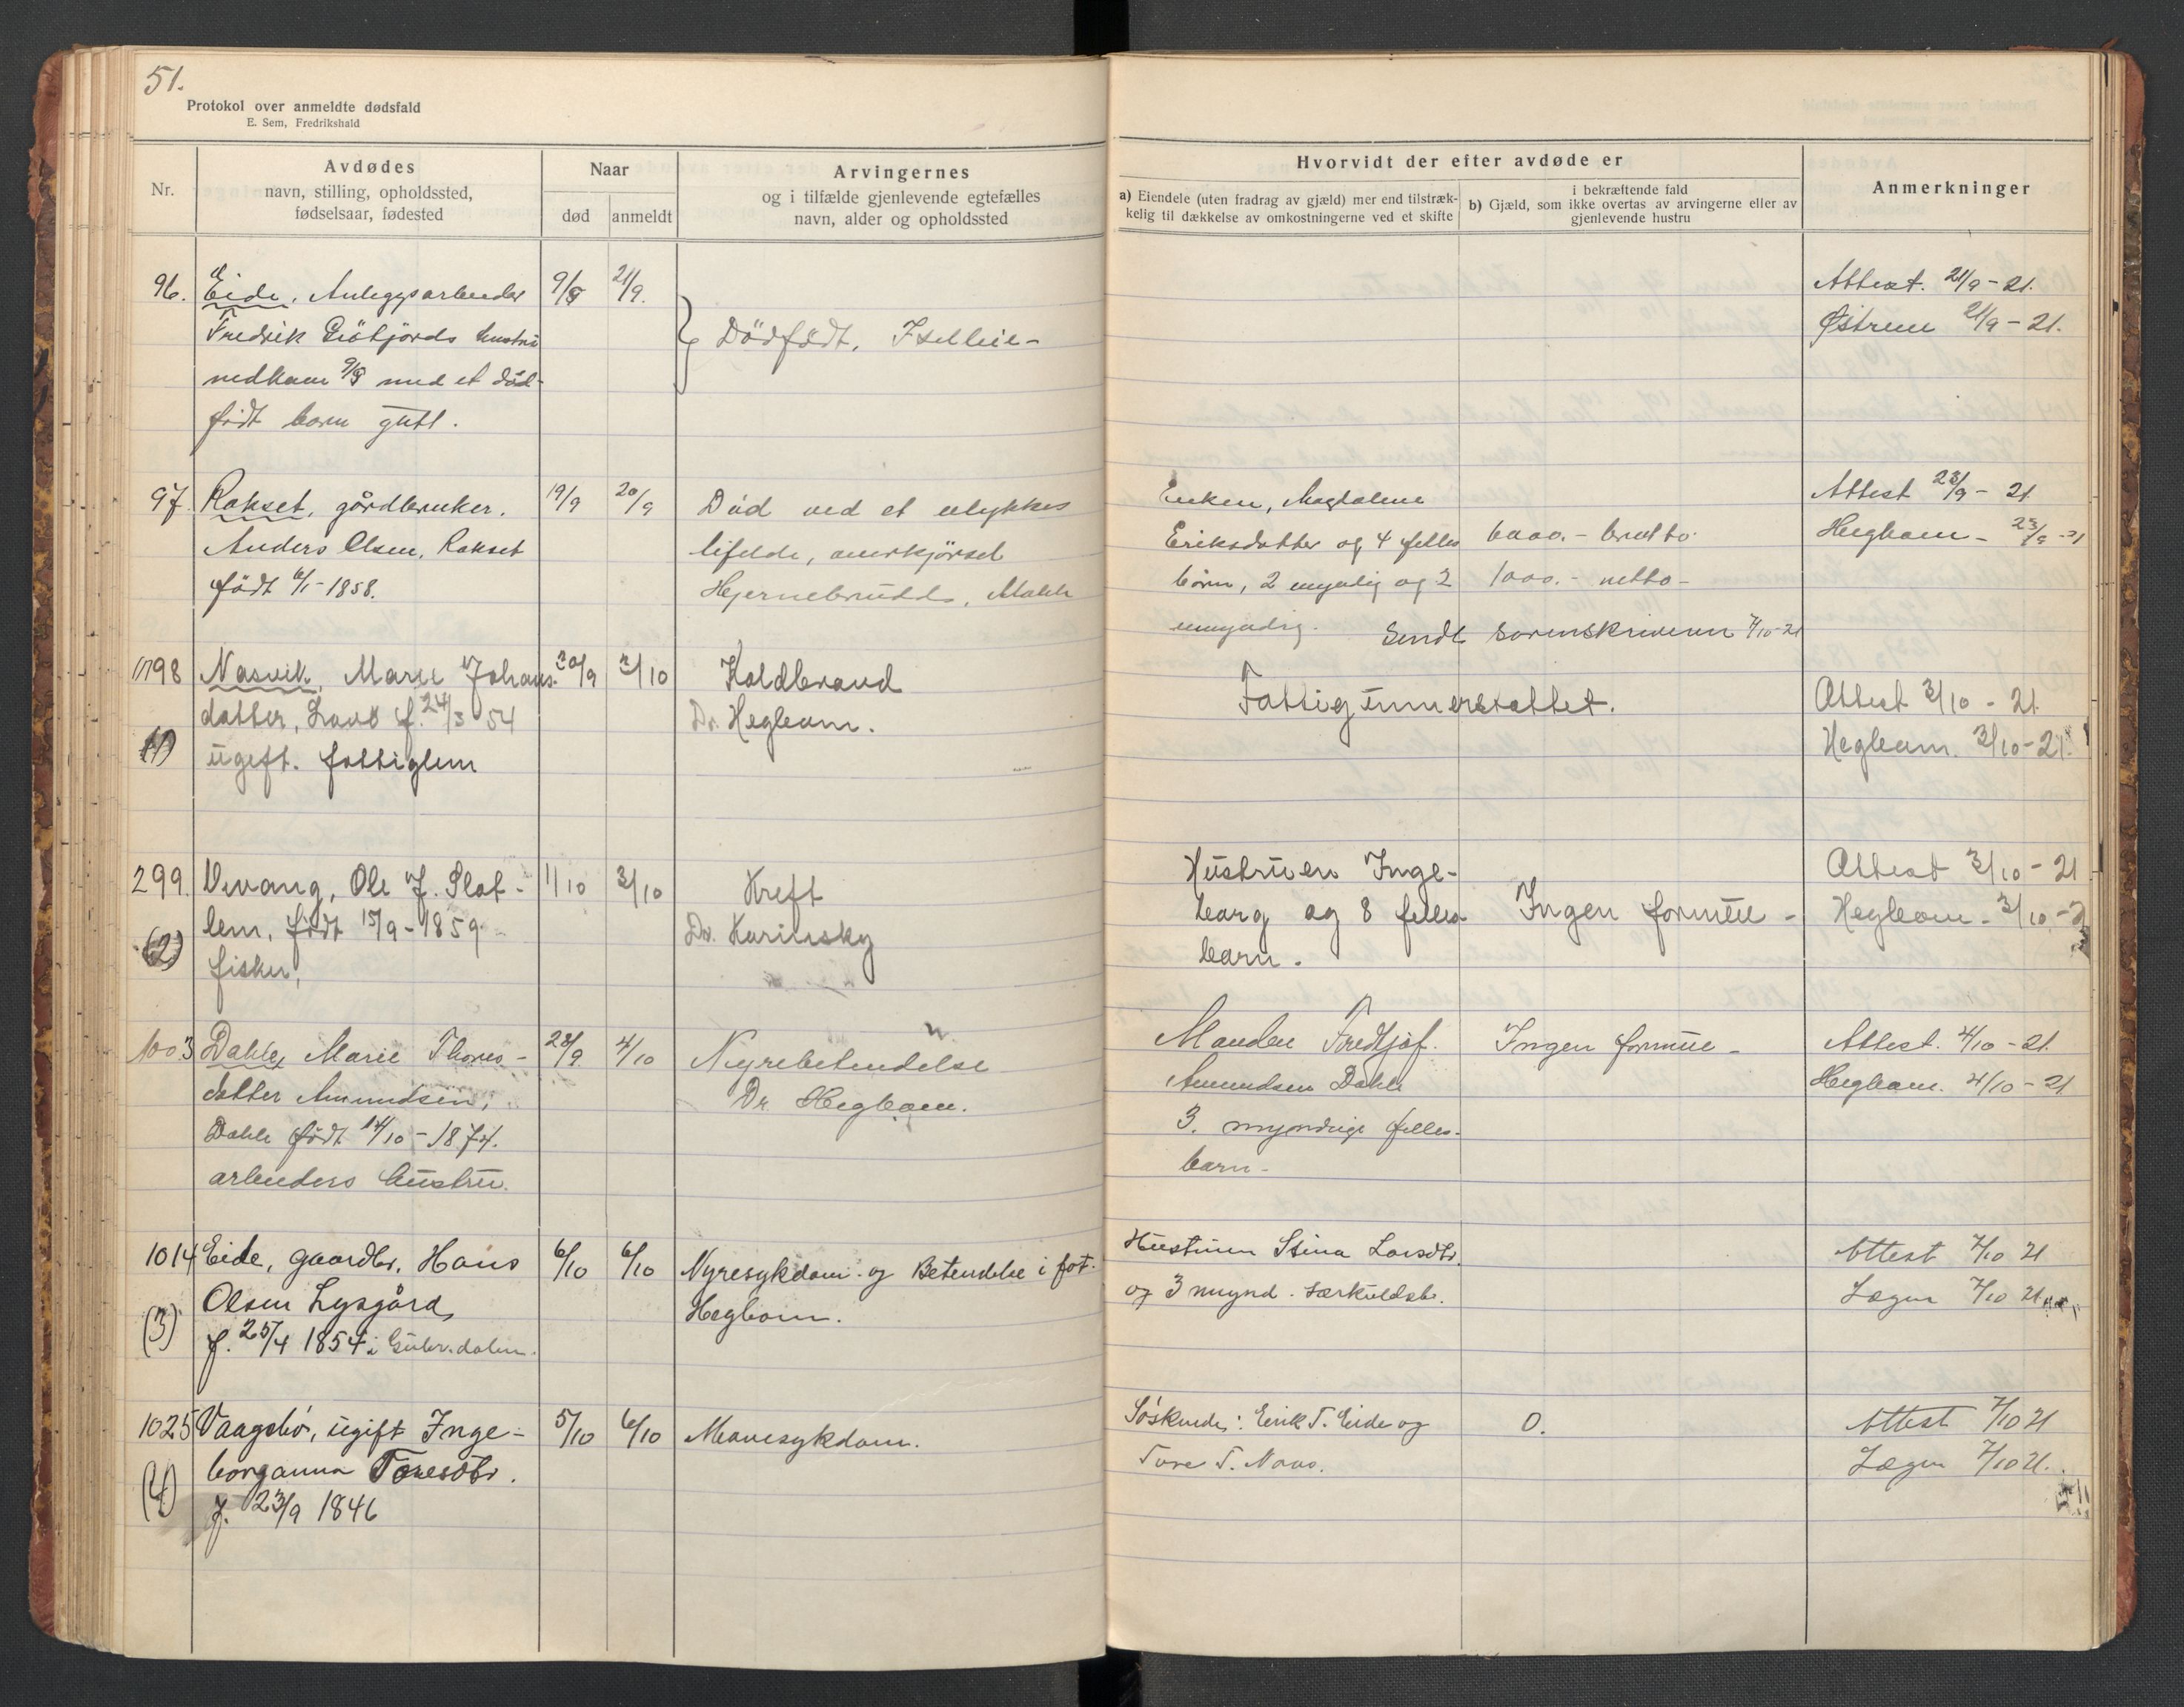 51.
Protokol over anmeldte dødsfald
E. Sem, Fredrikshald
Nr.
Avdødes
navn, stilling, opholdssted,
fødselsaar, fødested
Naar
død
anmeldt
Arvingernes
og i tilfælde gjenlevende egtefælles
navn, alder og opholdssted
Hvorvidt der efter avdøde er
a) Eiendele (uten fradrag av gjæld) mer end tilstræk-
kelig til dækkelse av omkostningerne ved et skifte
i bekræftende fald
b) Gjæld, som ikke overtas av arvingerne eller av
gjenlevende hustru
Anmerkninger
96. Eide, Anlegsarbeider 9/9 21/9. Attest. 21/9-21.
Fredrik hustru Dödfödt. Østrem 21/9-21.
nedkom 9/9 med et död-
födt barn gutt.
97 Rakset, gårdbruker. 19/9 20/9 Död ved et ulykkes Enken, Magdalene Attest 23/9-21
Anders Olsen, Rakset tifelde, Eriksdatter og 4 felles 6000.- brutto Hegbom - 23/9-21
født 6/1-1858. börn, 2 myndig og 2 1000.- netto-
umyndig. Sendt sorenskriveren 7/10-21
98 Nasvik, Marie Johans- 30/9 2/10 Koldbrand Fattigunnerstøttet. Attest 3/10-21
datter, f. 24/3 54 Dr. Hegbom. Hegbom. 3/10-21.
(1) ugift. fattiglem
299. Vevang, Ole J. 1/10 3/10 Kreft Hustruen Inge- Attest 3/10-21
lem, født 15/9-1859 Dr. borg og 8 felles Ingen formue - Hegbom - 3/10-21
(2) fisker, barn.
1003 Dahle, Marie Thores- 28/9. 4/10 Nyrebetendelse Manden Fredtjof. Ingen formue - Attest. 4/10-21.
datter Amundsen, Dr. Hegbom. Amundsen Dahle Hegbom. 4/10-21
Dahle født 14/10-1874. 3. myndige felles-
arbeiders hustru. barn-
1014 Eide, gaardbr. Hans 6/10 6/10 Nyresykdom og Betendelse i fot. Hustruen Stina Larsdtr. Attest 7/10 21
Olsen Lysgård, Hegbom. og 3 mynd. særkuldsb. Lægen 7/10 21
(3) f. 25/4 1854 i Gudbr.dalen.
1025 Vaagsbö, ugift Inge- 5/10 6/10 Mavesykdom. Söskende: Eirik T. Eide og 0. Attest 7/10 21
borganna Toresdtr. Tore T. Naas. Lægen 7/10 21.
(4) f. 23/9 1846